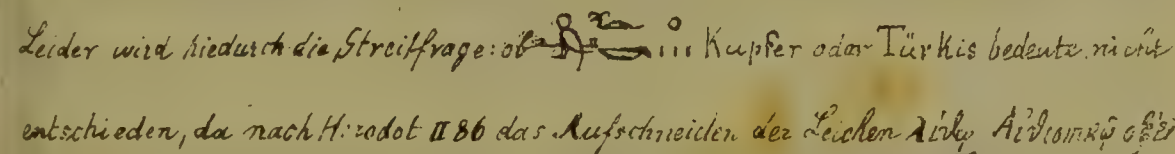 Leider wird hiedurch die Streitfrage: ob Kupfer oder Türkis bedeute nicht
entschieden, da nach Herodot II 86 das Aufschneiden der Leichen λίθῳ Αἰθιοπικῷ ὀξέϊ